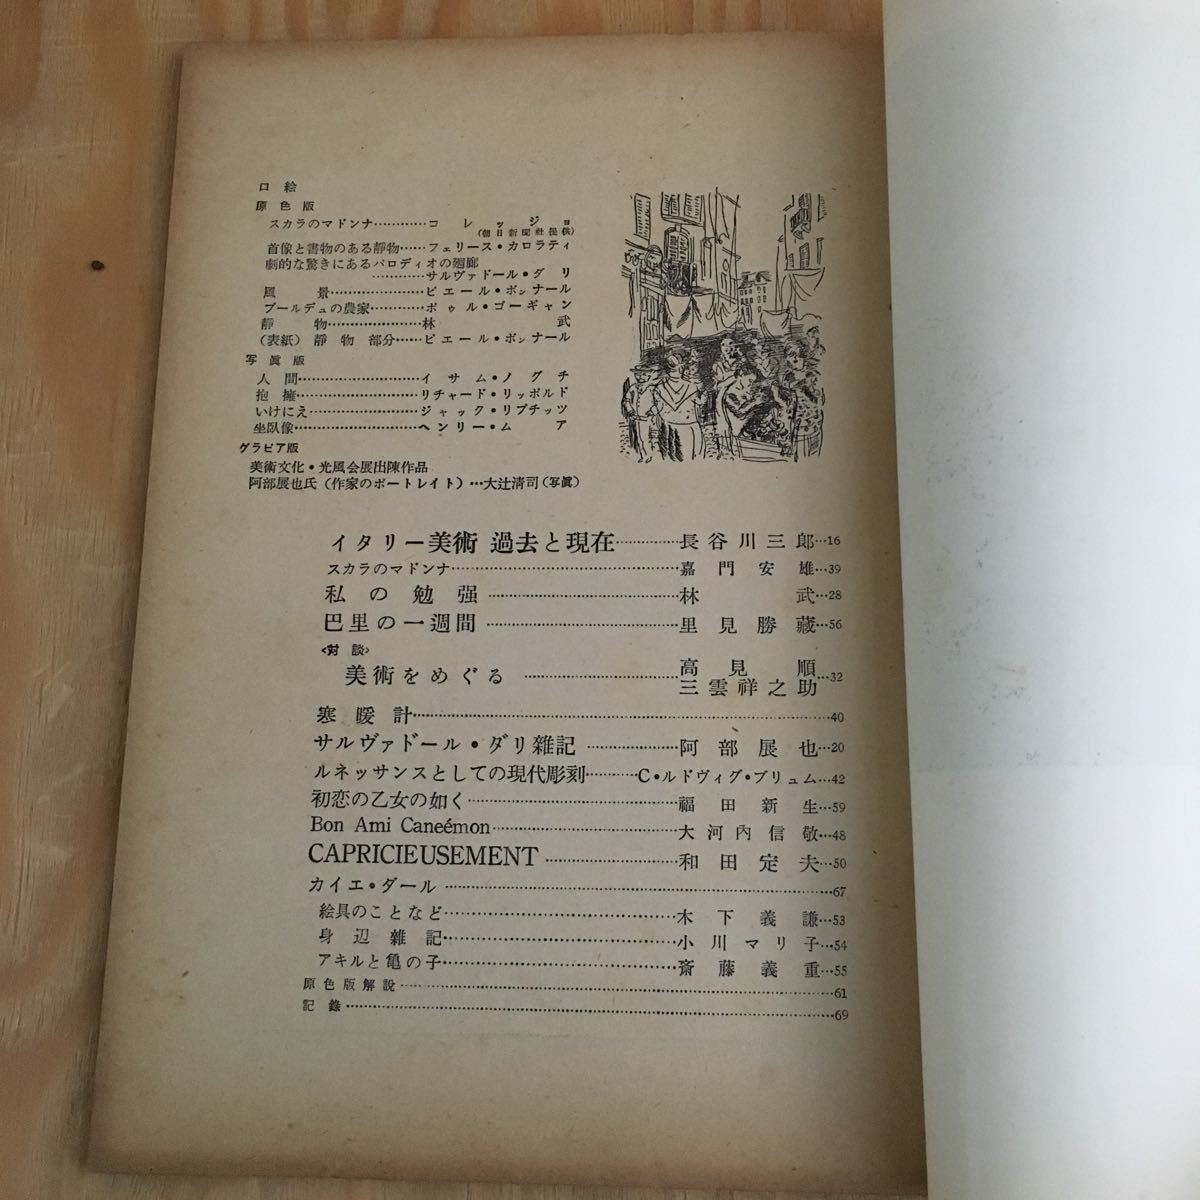 口絵
原色版
スカラのマドンナ…………コレッジョ
(朝日新聞社提供)
首像と書物のある静物……フェリース・カロラティ
劇的な驚きにあるパロディオの廻廊
…………サルヴァドール・ダリ
風景…………………ピエール・ボンナール
プールデュの農家…………ポゥル・ゴーギャン
静物…………………林武
(表紙) 静物 部分……ピエール・ボンナール
写真版
人間…………………………イサム・ノグチ
抱擁…………………………リチャード・リッポルド
いけにえ……………………ジャック・リプチッツ
坐臥像………………………ヘンリー・ムア
グラビア版
美術文化・光風会展出陳作品
阿部展也氏(作家のポートレイト)…大辻清司(写真)
イタリー美術 過去と現在…………長谷川三郎…16
スカラのマドンナ…………………嘉門安雄…39
私の勉强…………………………林武…28
巴里の一週間……………………里見勝藏…56
<対談>
美術をめぐる…………………高見順
三雲祥之助…32
寒暖計……………………………………………40
サルヴァドール・ダリ雜記…………阿部展也…20
ルネッサンスとしての現代彫刻………C・ルドヴィグ・ブリュム…42
初恋の乙女の如く…………………福田新生…59
Bon Ami Caneémon…………………大河內信敬…48
CAPRICIEUSEMENT…………………和田定夫…50
カイエ・ダール……………………………………67
絵具のことなど……………………木下義謙…53
身辺雜記…………………………小川マリ子…54
アキルと亀の子……………………斎藤義重…55
原色版解説………………………………………61
記錄………………………………………………69